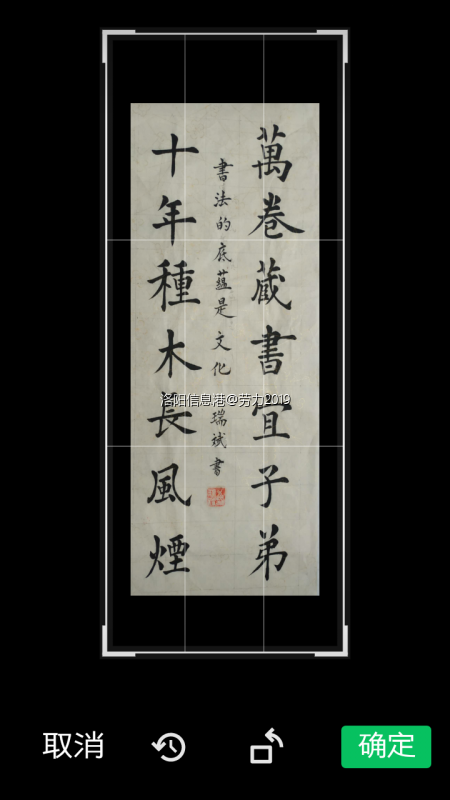 萬卷藏書宜子弟
書法的底蘊是文化
瑞斌書
十年種木長風煙
洛阳信息港@劳力2019
取消
确定